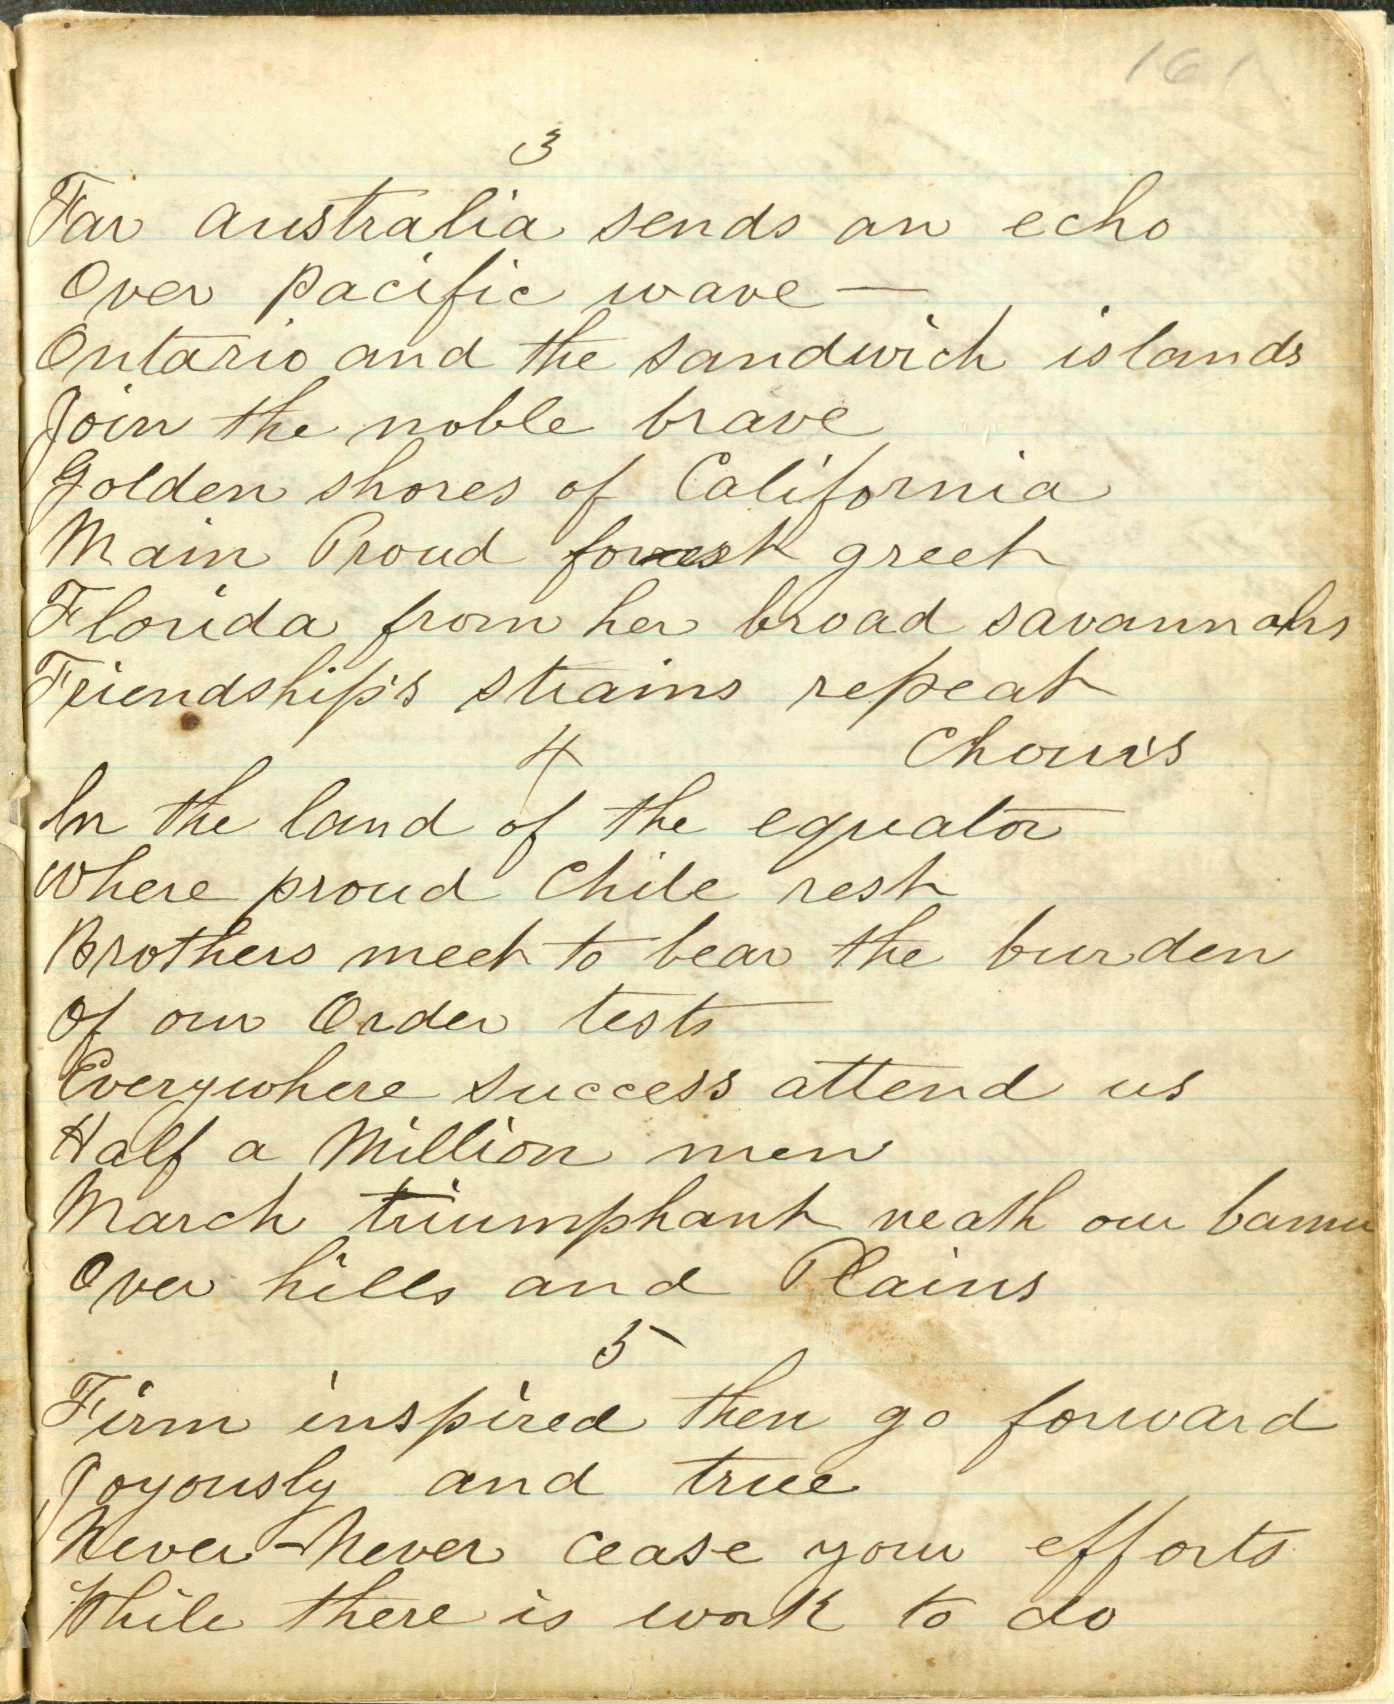 161
3
Far australia sends an echo
Over pacific wave —
Ontario and the sandwich islands
Join the noble brave
Golden shores of California
Main Proud forest greet
Florida from her broad savannahs
Friendship's strains repeat
Chouris
4
In the land of the equator
where proud Chile rest
Brothers meet to bear the burden
Of our Order tests
Everywhere success attend us
Half a Million men
March triumphant neath our banner
Over hills and Plains
5
Firm inspired then go forward
Joyously and true
Never - Never cease your efforts
While there is work to do